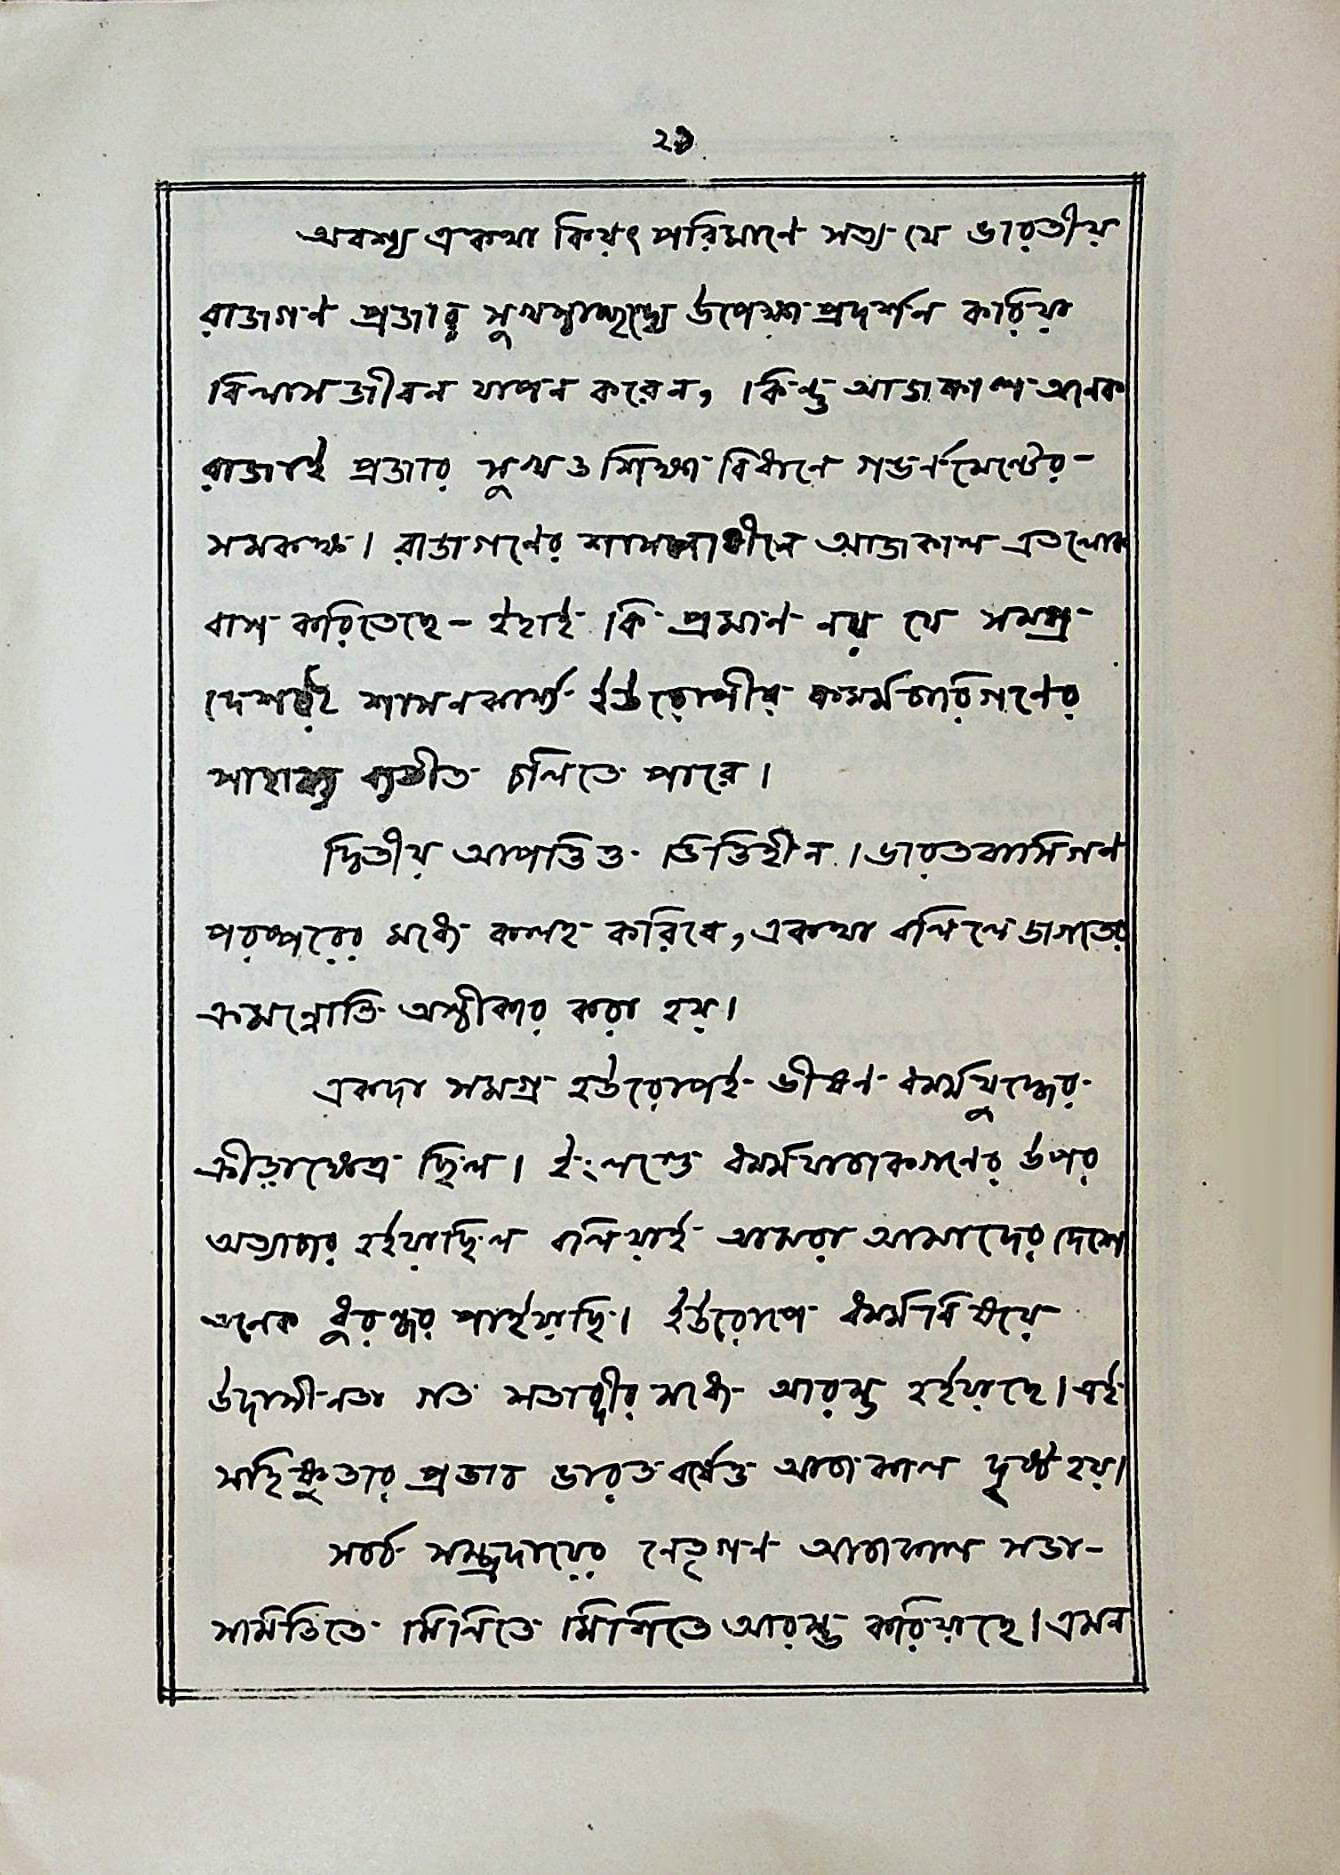 ২৯
অবশ্য একথা কিয়ৎ পরিমাণে সত্য যে ভারতীয়
রাজগণ প্রজার সুখস্বাচ্ছন্দ্যে উপেক্ষা প্রদর্শন করিয়া
বিলাস জীবন যাপন করেন, কিন্তু আজকাল অনেক
রাজাই প্রজার সুখ ও শিক্ষা বিধানে গভর্ণমেন্টের-
সমকক্ষ। রাজাগণের শাসনাধীনে আজকাল এত লোক
বাস করিতেছে - ইহাই কি প্রমাণ নয় যে সমগ্র
দেশেরই শাসনকার্য্য ইউরোপীয় কর্ম্মচারিগণের
সাহায্য ব্যতীত চলিতে পারে।
দ্বিতীয় আপত্তিও ভিত্তিহীন। ভারতবাসিগণ
পরস্পরের মধ্যে কলহ করিবে, একথা বলিলে জগতের
ক্রমন্নোতি অস্বীকার করা হয়।
একদা সমগ্র ইউরোপই ভীষণ ধর্ম্মযুদ্ধের
ক্রীড়াক্ষেত্র ছিল। ইংলণ্ডে ধর্ম্মযাজকগণের উপর
অত্যাচার হইয়াছিল বলিয়াই আমরা আমাদের দেশে
অনেক ধুরন্ধর পাইয়াছি। ইউরোপে ধর্ম্মবিষয়ে
উদাসীনতা গত শতাব্দীর মধ্যে আরম্ভ হইয়াছে। এই
সহিষ্ণুতার প্রভাব ভারতবর্ষেও আজকাল দৃষ্ট হয়।
সর্ব্ব সম্প্রদায়ের নেতৃগণ আজকাল সভা-
সমিতিতে মিলিতে মিশিতে আরম্ভ করিয়াছে। এমন